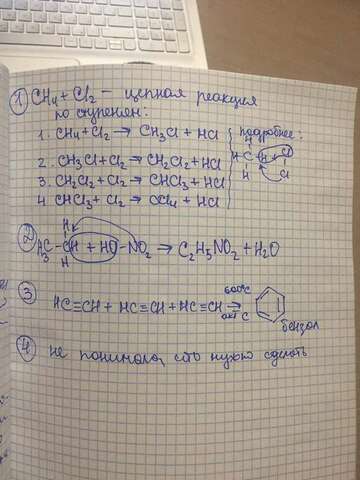 ① CH₄ + Cl₂ — цепная реакция
по ступеням:
1. CH₄ + Cl₂ → CH₃Cl + HCl
2. CH₃Cl + Cl₂ → CH₂Cl₂ + HCl
3. CH₂Cl₂ + Cl₂ → CHCl₃ + HCl
4 CHCl₃ + Cl₂ → CCl₄ + HCl
подробнее:
H
H C H Cl
H Cl
②
H
H₃C – CH + HO – NO₂ → C₂H₅NO₂ + H₂O
H
③ HC≡CH + HC≡CH + HC≡CH → 
600°C
акт C
бензол
④ не понимаю, что нужно сделать